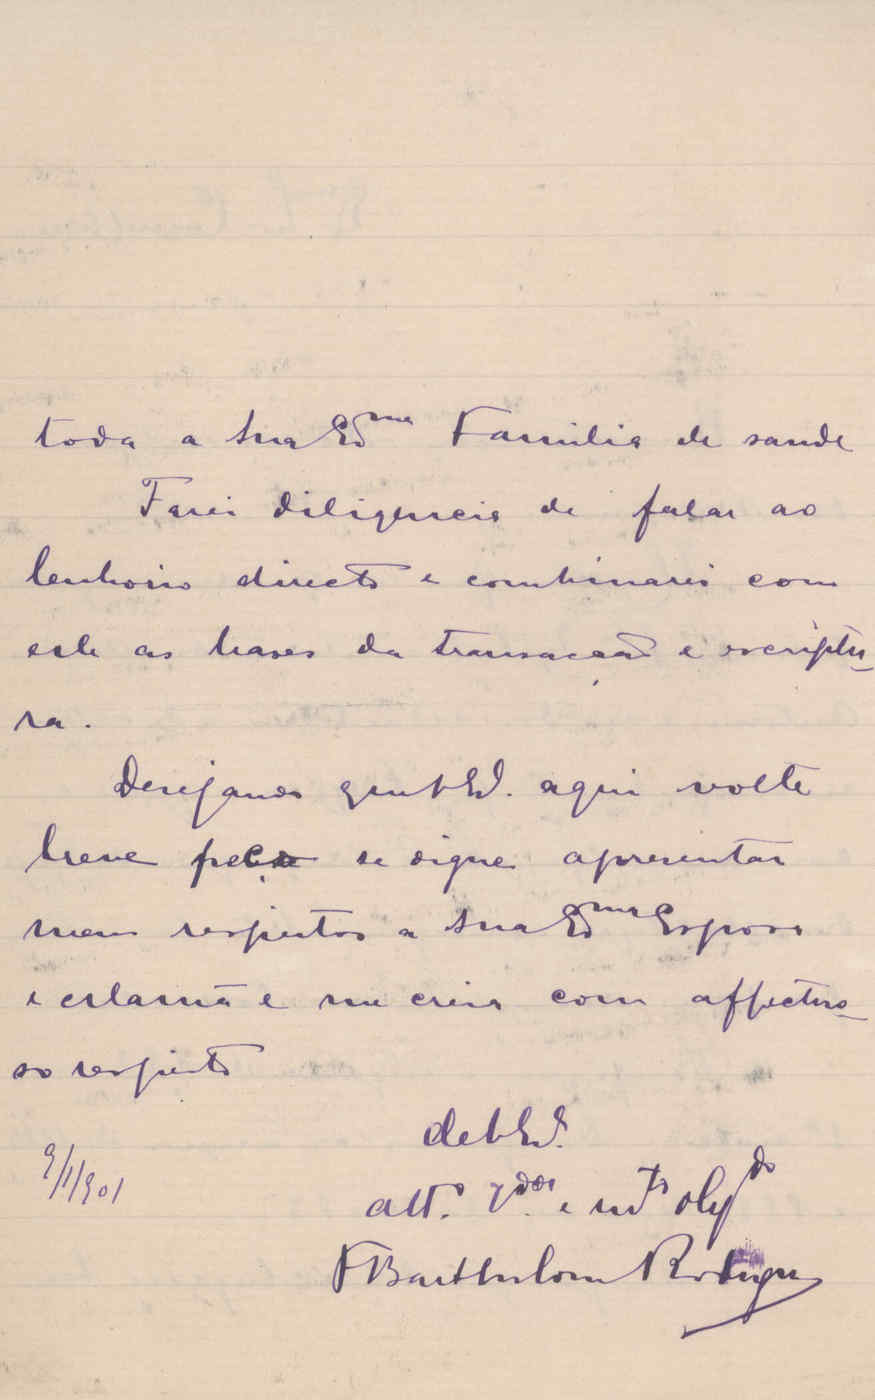 toda a sua Ex.ma Familia de saude
Farei diligencia de falar ao
senhorio directo e combinarei com
este as bases da transacção e escriptu-
ra.
Desejando que V. Ex.ª aqui volte
breve peço se digne apresentar
meus respeitos a sua Ex.ma Esposa
e estamã e me creia com affectuo-
so respeito
de V. Ex.ª
9/1/901
att.º e mto obgdo
F Bartholomeu Rodrigues